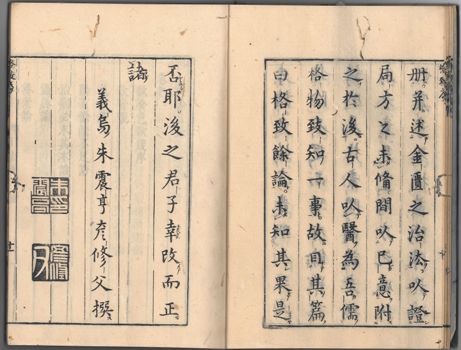 册并述金匱之治法以證
局方之未備間以己意附
之於後古人以醫為吾儒
格物致知一事故目其篇
曰格致餘論未知其果是
否耶後之君子幸改而正
諸
義烏朱震亨彥修父撰